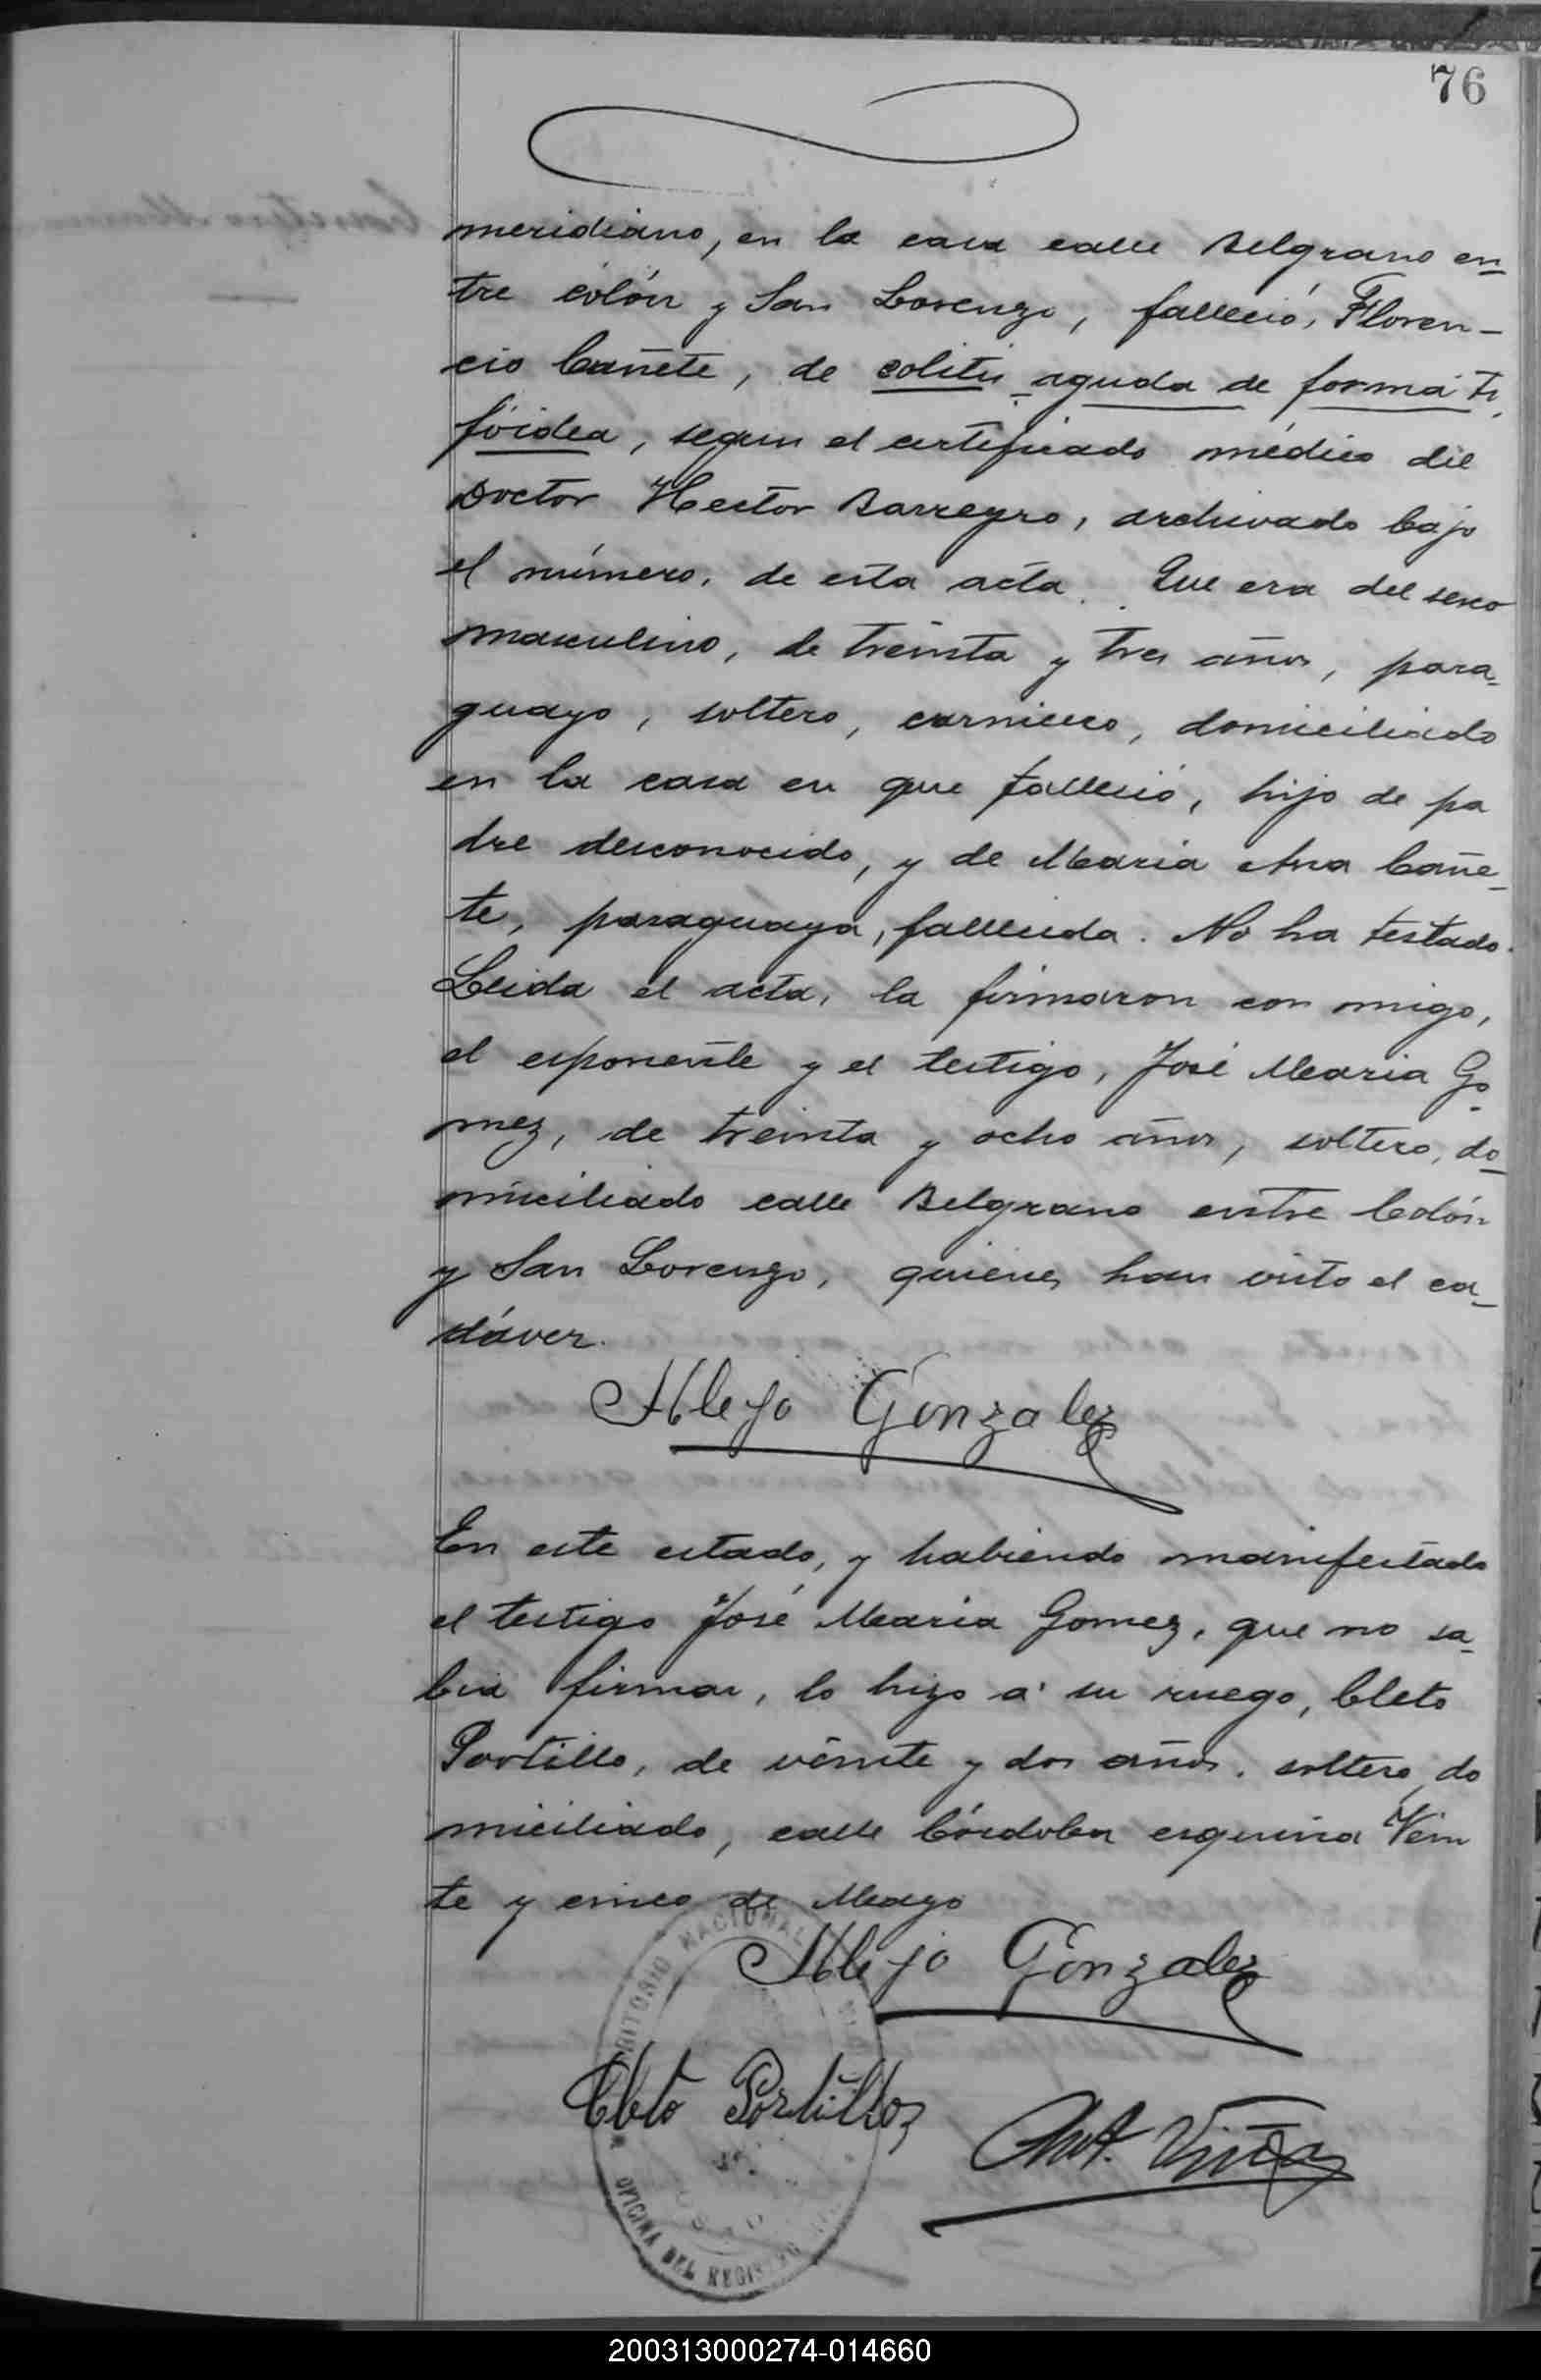 76
meridiano, en la casa calle Belgrano en
tre Colón y San Lorenzo, falleció, Floren-
cio Cañete, de colitis aguda de forma ti
fóidea, segun el certificado médico del
Doctor Hector Barreyro, archivado bajo
el número, de esta acta. Que era del sexo
masculino, de treinta y tres años, para-
guayo, soltero, carnicero, domiciliado
en la casa en que falleció, hijo de pa
dre desconocido, y de Maria Ana Cañe-
te, paraguaya, fallecida. No ha testado.
Leida el acta, la firmaron con migo,
el esponente y el testigo, José Maria Go-
mez, de treinta y ocho años, soltero, do-
miciliado calle Belgrano entre Colón
y San Lorenzo, quienes han visto el ca-
dáver.
Alejo Gonzalez
En este estado, y habiendo manifestado
el testigo José Maria Gomez, que no sa-
bia firmar, lo hizo á su ruego, Cleto
Portillo, de veinte y dos años, soltero, do
miciliado, calle Córdoba esquina Vein
te y cinco de Mayo
Alejo Gonzalez
Cleto Portillo
Ant.
RITORIO NACIONAL
OFICINA DEL REGISTRO
200313000274-014660